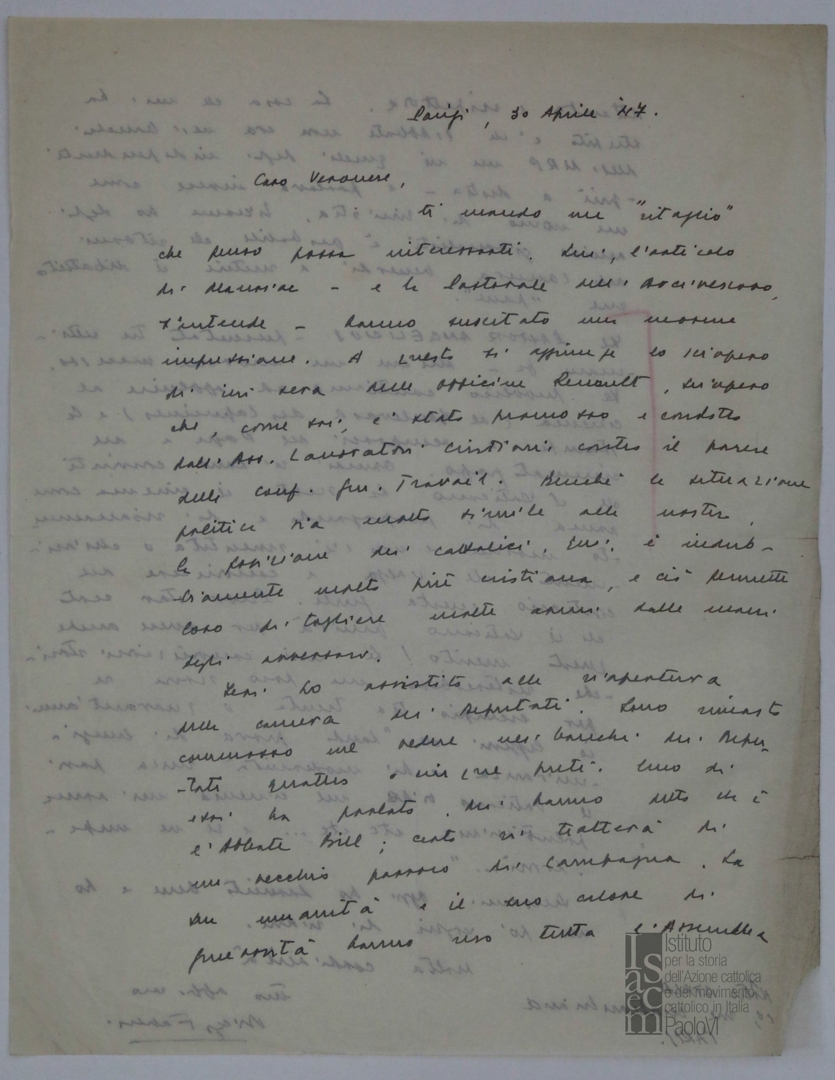 Parigi, 30 Aprile '47.
Caro Veronese,
ti mando un "ritaglio"
che penso possa interessarti. Qui, l'articolo
di Mauriac – e la Pastorale dell'Arcivescovo,
s'intende – hanno suscitato una enorme
impressione. A questo si aggiunge lo sciopero
di ieri sera delle officine Renault, sciopero
che, come sai, è stato promosso e condotto
dall'Ass. Lavoratori Cristiani contro il parere
della Conf. Gen. Travail. Benché la situazione
politica sia molto simile alla nostra,
la posizione dei cattolici, qui, è indub-
biamente molto più cristiana, e ciò permette
loro di togliere molte armi dalle mani
degli avversari.
Ieri ho assistito alla riapertura
della camera dei Deputati. Sono rimasto
commosso nel vedere nei banchi dei Depu-
-tati quattro o cinque preti. Uno di
essi ha parlato. Mi hanno detto che è
l'Abbate ; certo si tratterà di
un vecchio parroco di campagna. La
sua umanità e il suo calore di
generosità hanno reso tutta l'Assemblea
Istituto
per la storia
dell'Azione cattolica
e del movimento
cattolico in Italia
Paolo VI